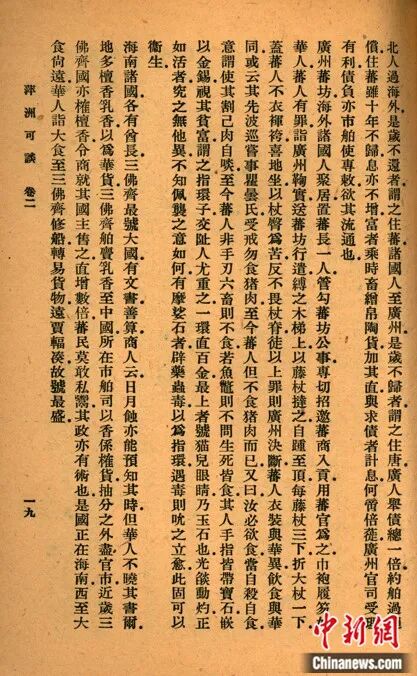 北人過海外是歲不還者謂之住蕃諸國人至廣州是歲不歸者謂之住唐廣人舉債總一倍約舶過
償住蕃雖十年不歸息亦不增富者乘時畜繒帛陶貨加其直與求債者計息何啻倍蓰廣州官司受理
有利債負亦市舶使專敕欲其流通也
廣州蕃坊海外諸國人聚居置蕃長一人管勾蕃坊公事專切招邀蕃商入貢用蕃官為之巾袍履笏如
華人蕃人有罪詣廣州鞫實送蕃坊行遣縛之木梯上以藤杖撻之自踵至頂每藤杖三下折大杖一下
蓋蕃人不衣褌袴喜地坐以杖臀為苦反不畏杖脊徒以上罪則廣州決斷蕃人衣裝與華異飲食與華
同或云其先波巡嘗事瞿曇氏受戒勿食猪肉至今蕃人但不食猪肉而已又曰汝必欲食當自殺自食
意謂使其割己肉自啖至今蕃人非手刃六畜則不食若魚鱉則不問生死皆食其人手指皆帶寶石嵌
以金錫視其貧富謂之指環子交阯人尤重之一環直百金最上者號猫兒眼睛乃玉石也光燄動灼正
如活者究之無他異不知佩襲之意如何有摩娑石者辟藥蟲毒以為指環遇毒則吮之立愈此固可以
衞生
海南諸國各有酋長三佛齊最號大國有文書善算商人云日月蝕亦能預知其時但華人不曉其書爾
地多檀香乳香以為華貨三佛齊舶賫乳香至中國所在市舶司以香係榷貨抽分之外盡官市近歲三
佛齊國亦榷檀香令商就其國主售之直增數倍蕃民莫敢私鬻其政亦有術也是國正在海南西至大
食尚遠華人詣大食至三佛齊修船轉易貨物遠賈輻湊故號最盛
萍洲可談 卷二
一九
中新網
Chinanews.com